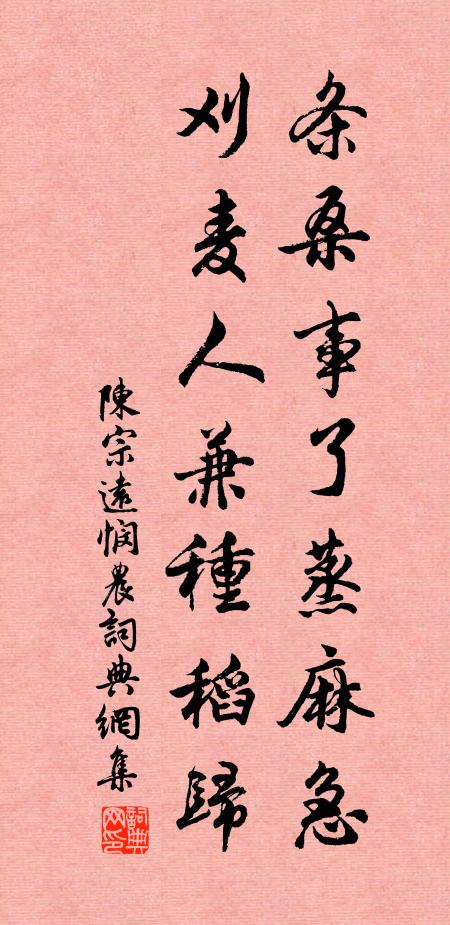 条桑事了蒸麻急
刈麦人兼種稻歸
陳宗遠憫農詞典網集
詞典网印